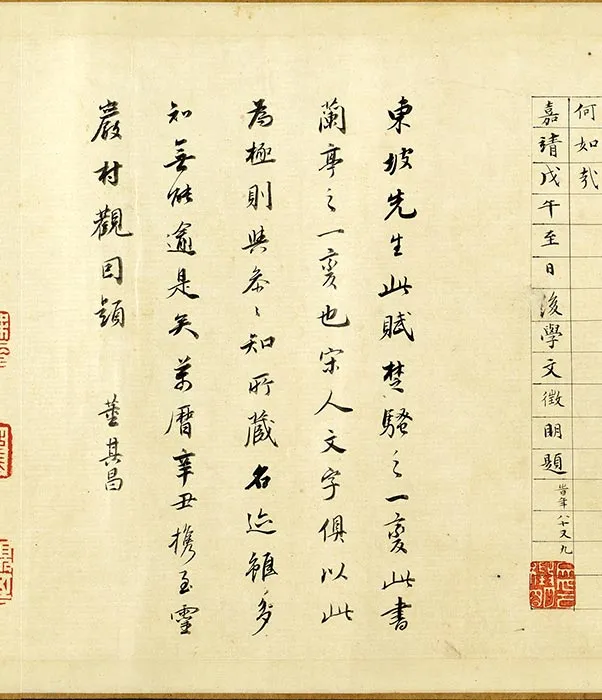 何如哉
嘉靖戊午至日後學文徵明題
旹年八十又九
東坡先生此賦楚騷之一變此書
蘭亭之一變也宋人文字俱以此
為極則與參〻知所藏名迹雖多
知無能逾是矣萬曆辛丑携至靈
巖村觀因題 董其昌